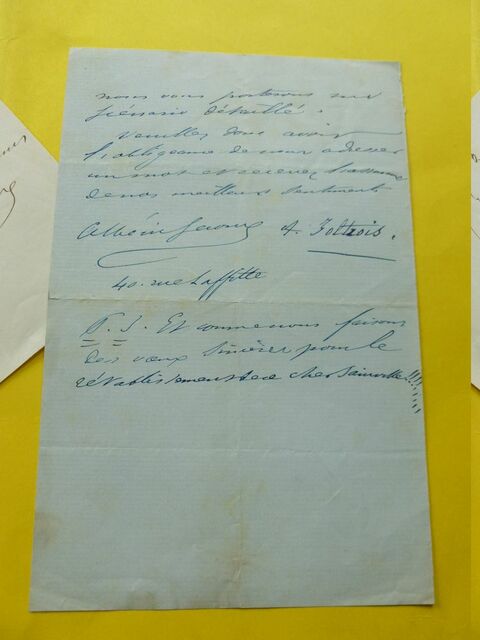 nous vous porterons un
scénario détaillé.
Veuillez donc avoir
l'obligeance de nous adresser
un mot et recevez l'assurance
de nos meilleurs sentiments
Albéric Second
40. rue Laffitte
P. S. Et comme nous faisons
des vœux sincères pour le
rétablissement de ce cher Sainville!!!!